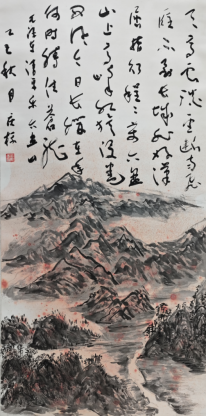 天高云淡望断南飞
雁不到长城非好汉
屈指行程二万六盘
山上高峰红旗漫卷
西风今日长缨在手
何时缚住苍龙
毛泽东清平乐六盘山
秋月